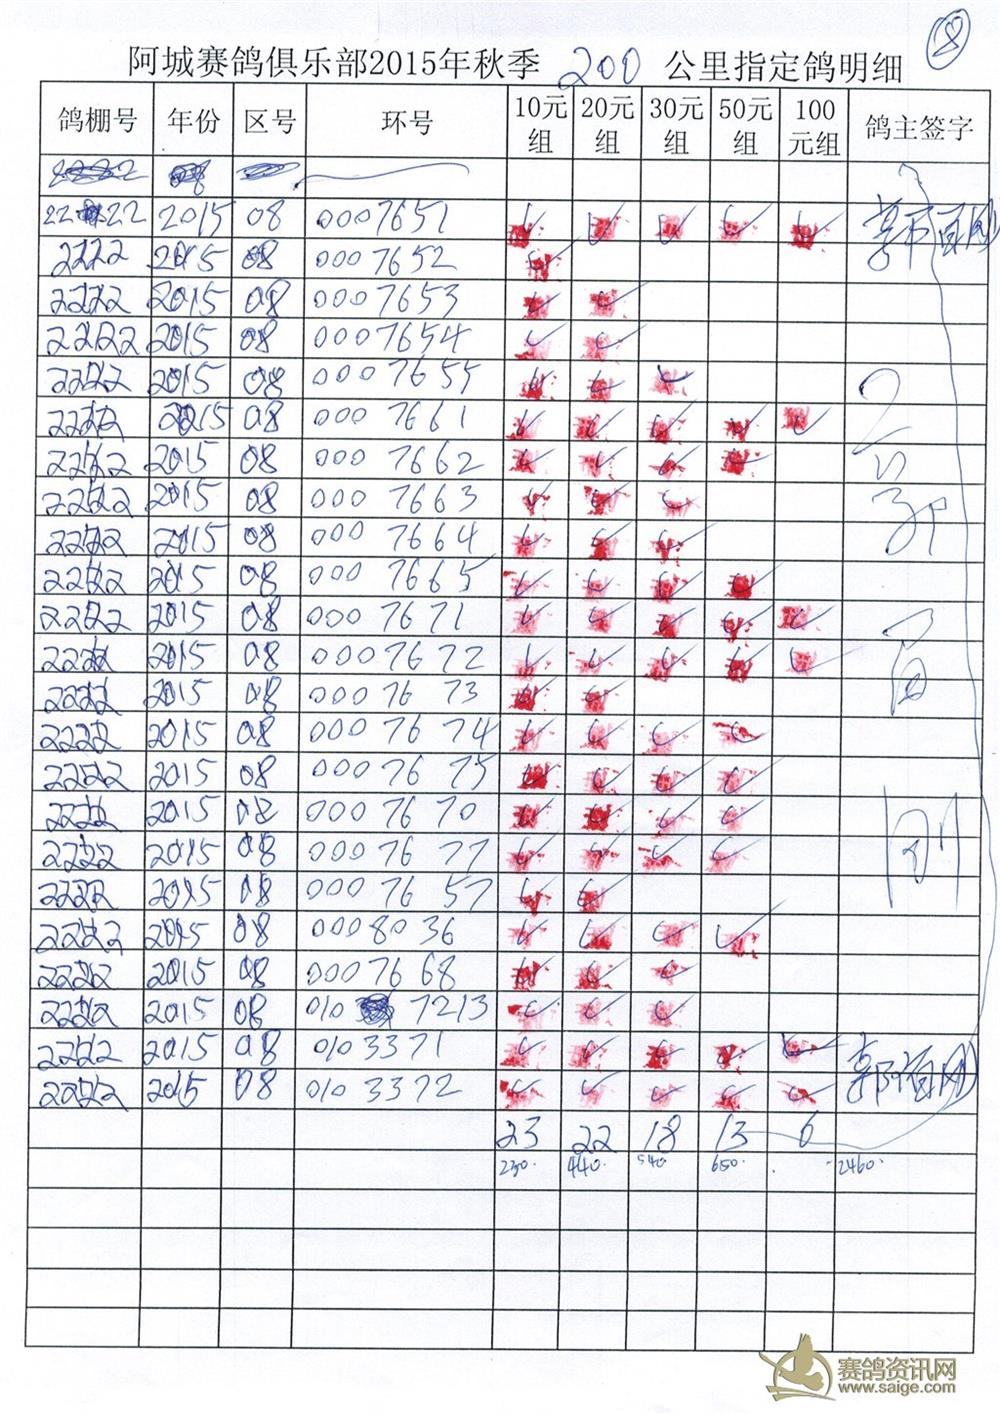 ⑧
阿城赛鸽俱乐部2015年秋季 200 公里指定鸽明细
鸽棚号 年份 区号 环号 10元组 20元组 30元组 50元组 100元组 鸽主签字
2222 2015 08 0007651
2222 2015 08 0007652
2222 2015 08 0007653
2222 2015 08 0007654
2222 2015 08 0007655
2222 2015 08 0007661
2222 2015 08 0007662
2222 2015 08 0007663
2222 2015 08 0007664
2222 2015 08 0007665
2222 2015 08 0007671
2222 2015 08 0007672
2222 2015 08 0007673
2222 2015 08 0007674
2222 2015 08 0007675
2222 2015 08 0007670
2222 2015 08 0007677
2222 2015 08 0007657
2222 2015 08 0008036
2222 2015 08 0007668
2222 2015 08 010 7213
2222 2015 08 0103371
2222 2015 08 0103372
23 22 18 13 6
230. 440. 540 650. 2460.
赛鸽资讯网
www.saige.com